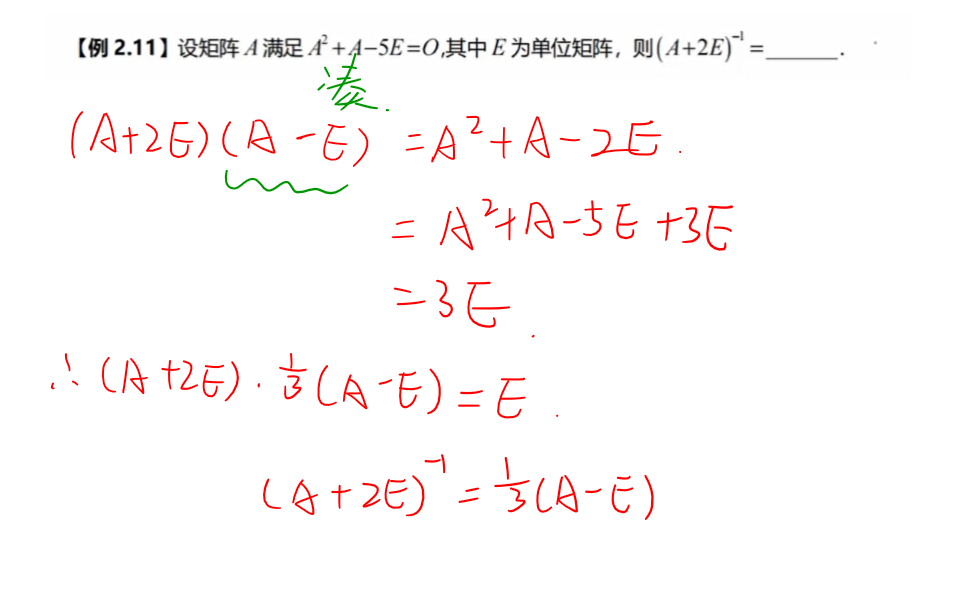 【例 2.11】设矩阵 A 满足 A²+A−5E=O,其中 E 为单位矩阵，则(A+2E)⁻¹=______.
凑.
(A+2E)(A−E) =A²+A−2E.
= A²+A−5E+3E
=3E.
∴(A+2E)·⅓(A−E)=E.
(A+2E)⁻¹=⅓(A−E)